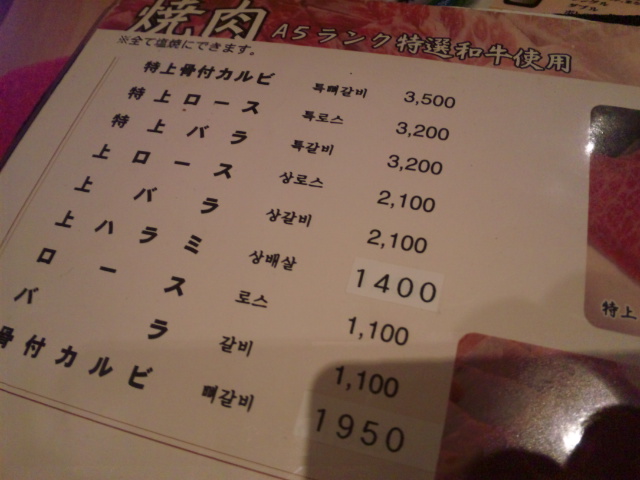 焼肉 A5ランク特選和牛使用
※全て塩焼にできます。
特上骨付カルビ 특뼈갈비 3,500
特上ロース 특로스 3,200
特上バラ 특갈비 3,200
上ロース 상로스 2,100
上バラ 상갈비 2,100
上ハラミ 상배살 1400
ロース 로스 1,100
バラ 갈비 1,100
骨付カルビ 뼈갈비 1950
特上